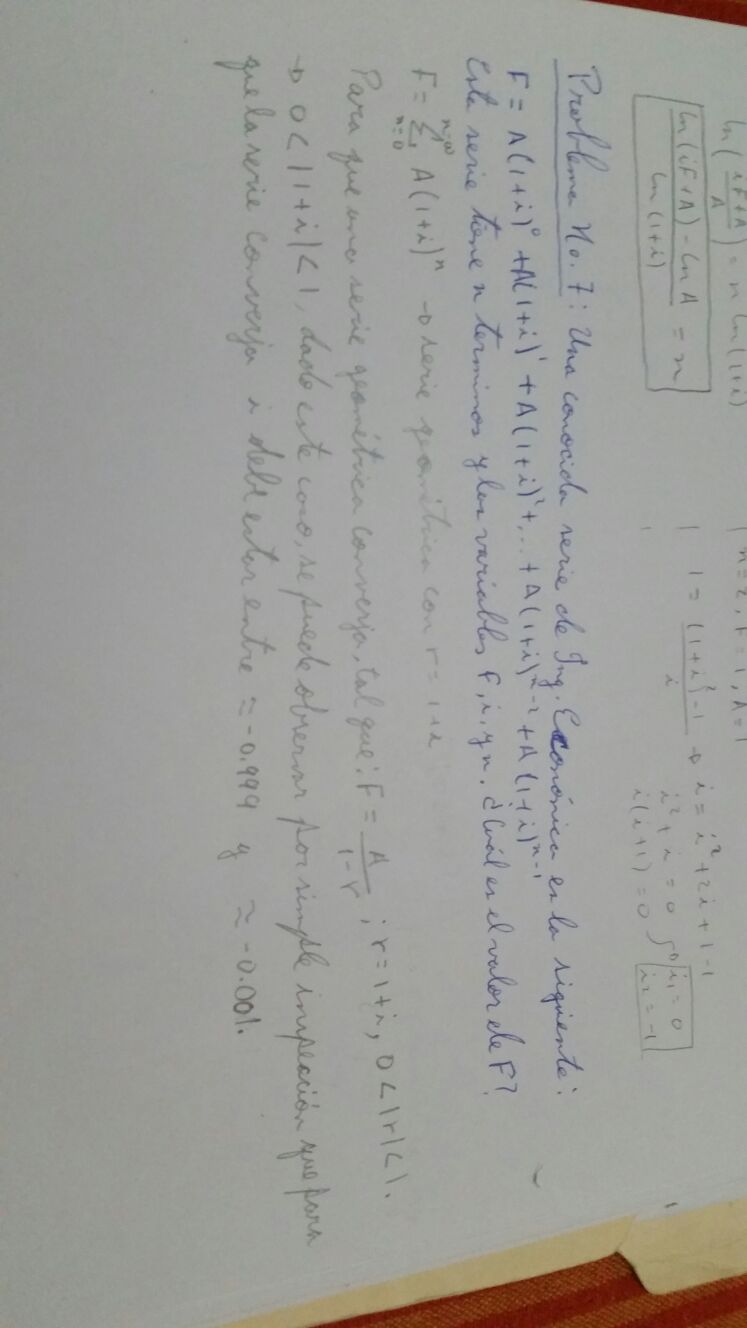 ln(iF+A/A) = n ln(1+i)
ln(iF+A) - ln A / ln(1+i) = n
n=2, F=1, A=1
1 = (1+i)²-1 / i → i = i²+2i+1-1
i²+i = 0
i(i+1) = 0
i₁ = 0
i₂ = -1
Problema No. 7: Una conocida serie de Ing. Económica es la siguiente:
F = A(1+i)⁰ + A(1+i)¹ + A(1+i)² + ... + A(1+i)ⁿ⁻² + A(1+i)ⁿ⁻¹
Esta serie tiene n terminos y las variables F, i, y n. ¿Cuál es el valor de F?
F = Σ n=0 n→∞ A(1+i)ⁿ → serie geométrica con r = 1+i
Para que una serie geométrica converja, tal que: F = A/1-r ; r = 1+i, 0<|r|<1.
→ 0<|1+i|<1, dado este caso, se puede observar por simple inspeación que para
que la serie converja i debe estar entre ≈ -0.999 y ≈ -0.001.